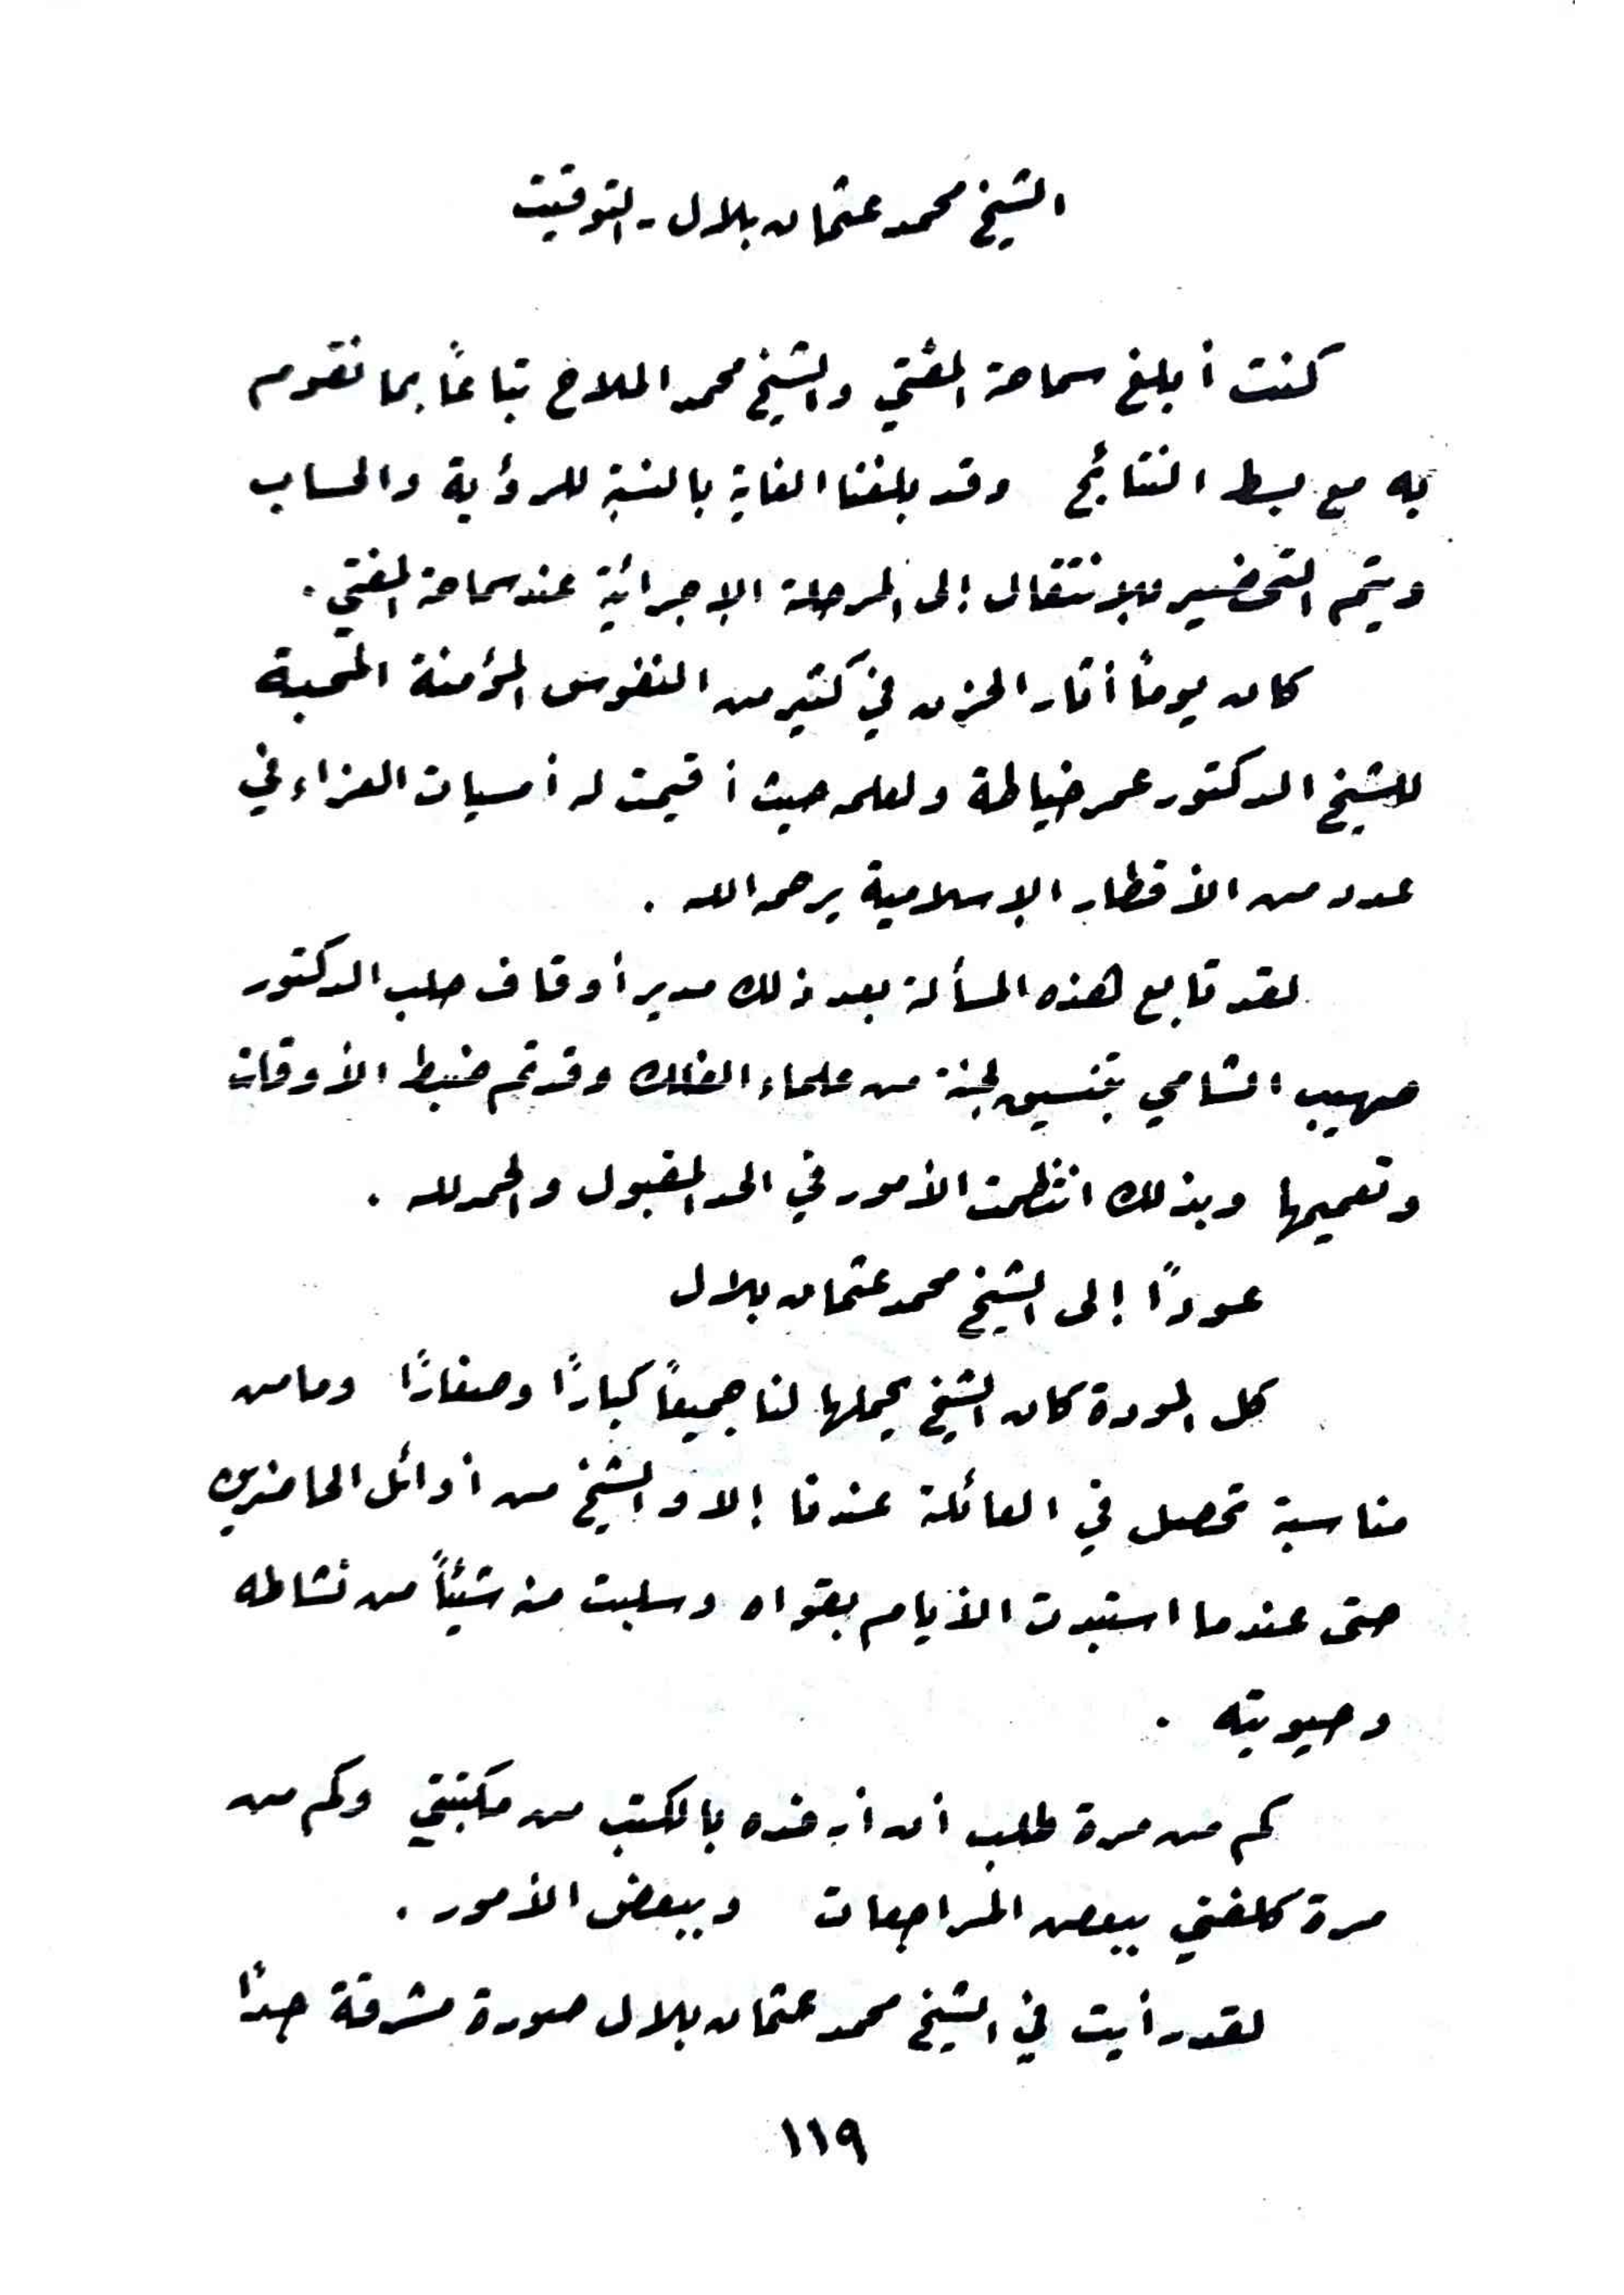 الشيخ محمد عثمان بلال - التوقيت
كنت أبلغ سماحة المفتي والشيخ محمد الملاح تباعاً بما نقوم
به مع بسط النتائج وقد بلغنا الغاية بالنسبة للرؤية والحساب
ويتم التحضير للانتقال إلى المرحلة الإجرائية عند سماحة المفتي .
كان يوماً أثار الحزن في كثير من النفوس المؤمنة المحبة
للشيخ الدكتور عمر خياطة ولعلمه حيث أقيمت له أمسيات العزاء في
عدد من الأقطار الإسلامية يرحمه الله .
لقد تابع هذه المسألة بعد ذلك مدير أوقاف حلب الدكتور
صهيب الشامي بتنسيق لجنة من علماء الفلك وقد تم ضبط الأوقات
وتعميمها وبذلك انتظمت الأمور في الحد المقبول والحمد لله .
عوداً إلى الشيخ محمد عثمان بلال
كل المودة كان الشيخ يحملها لنا جميعاً كباراً وصغاراً وما من
مناسبة تحصل في العائلة عندنا إلا والشيخ من أوائل الحاضرين
حتى عندما استبدت الأيام بقواه وسلبت منه شيئاً من نشاطه
وحيويته .
كم من مرة طلب أن أرفده بالكتب من مكتبتي وكم من
مرة كلفني ببعض المراجعات وببعض الأمور .
لقد رأيت في الشيخ محمد عثمان بلال صورة مشرقة جداً
١١٩